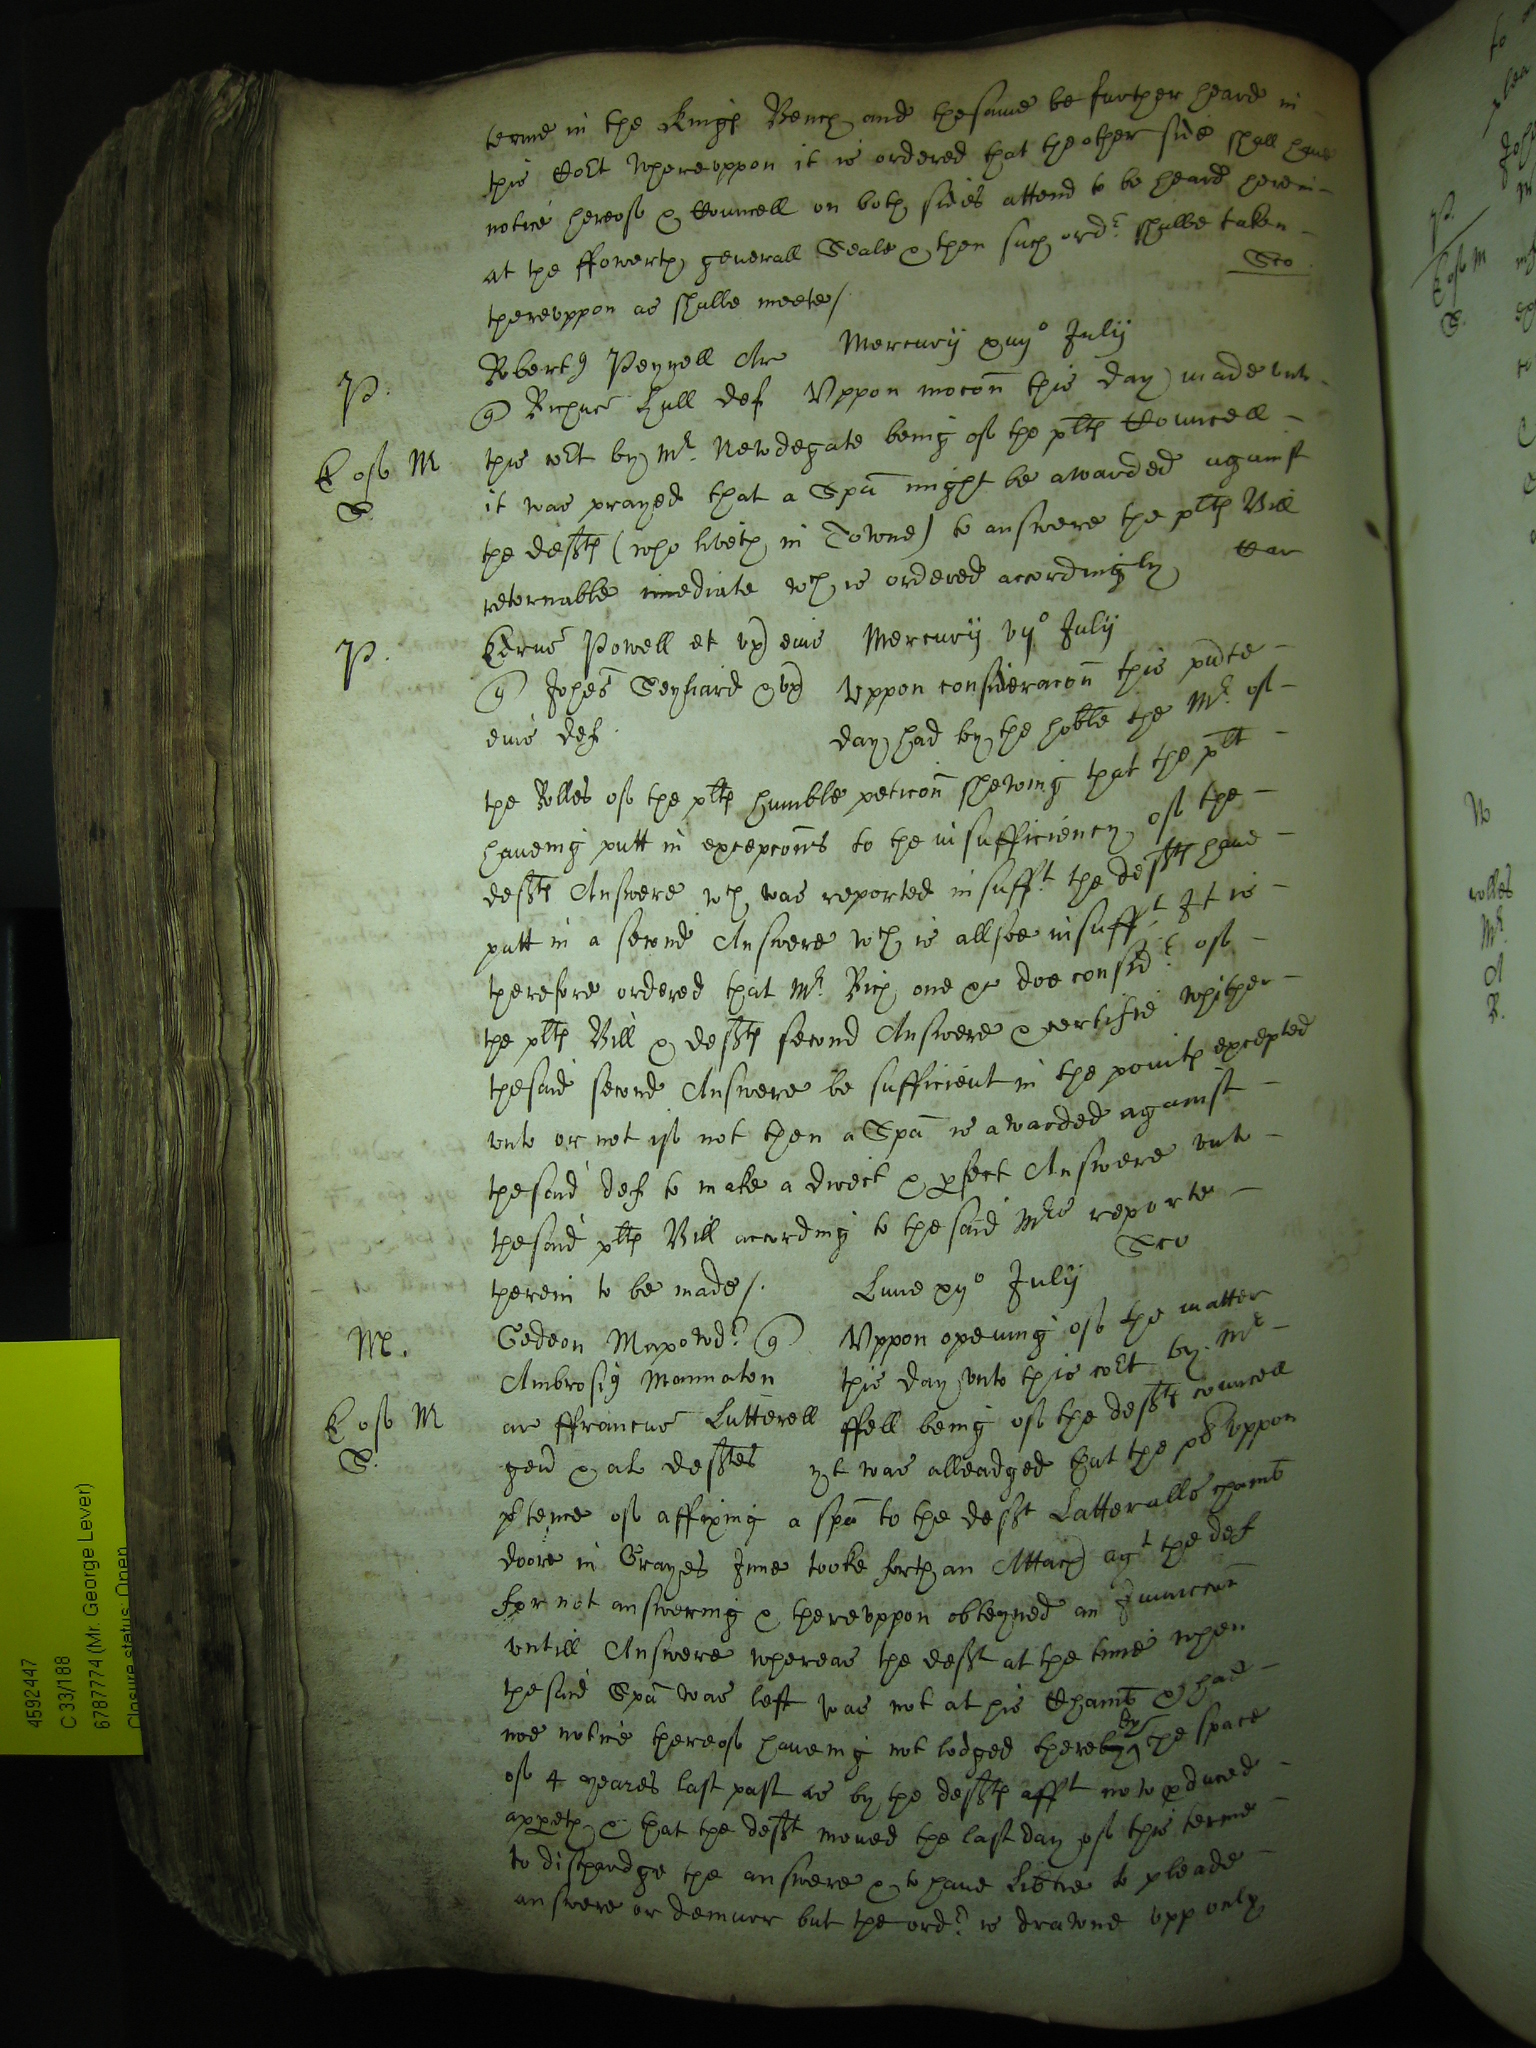 terme in the Kings Bench and the same be further heard in
this Cort Whereuppon it is ordered that the other side shall have
notice hereof & Councell on both sides attend to be heard herein
at the ffowerth generall Seale & then such ordr shalbe taken
thereuppon as shalbe meete/. Sco
P. Mercurij July
Roberts Peyzell Ar
Hull def Uppon mocon this day made unto
E of M this cort by Mr. Newdegate being of the plts Councell
S. it was prayed that a Spa might be awarded against
the defts (who liveth in Towne) to answere the plts Bill
retornable imediate wch is ordered accordingly Car
P. Powell et ux eius Mercurij July
Johes Seyliard & ux Uppon consideracon this pnte
eius def. day had by the hoble the Mr of
the Rolles of the plts humble peticon shewing that the plt
haveing putt in excepcons to the insufficiency of the
defts Answere wch was reported insufft the defts have
putt in a second Answere wch is allsoe insufft It is
therefore ordered that Mr. Rich one &c doe considr of
the plts Bill & defts second Answere & certifie whither
the said second Answere be sufficient in the points excepted
unto or not if not then a Spa is awarded against
the said def to make a direct & pfect Answere unto
the said plts Bill according to the said Mrs reporte
therein to be made/. Sco
Lune July
M. Gedeon Uppon opening of the matter
Ambrosis Mannaton this day unto this cort by Mr
E of M ar ffrancus Lutterell ffell being of the defts councell
S. gen & al deftes yt was alleadged that the pl uppon
ptence of affixing a spa to the deft Latteralls chamb
doore in Grayes Inne tooke forth an Attach agt the def
for not answering & thereuppon obteyned an Iniunccon
untill Answere whereas the deft at the time when
the said Spa was left was not at his Chamb & had
noe notice thereof haveing not lodged there by the space
of 4 yeares last past as by the defts afft now pduced
appeth & that the deft moved the last day of this terme
to dischardge the answere & to have Libtie to pleade
answere or demurr but the ordr is drawne upp only
4592447
C 33/188
6787774 (Mr. George Lever)
Closure status: Open